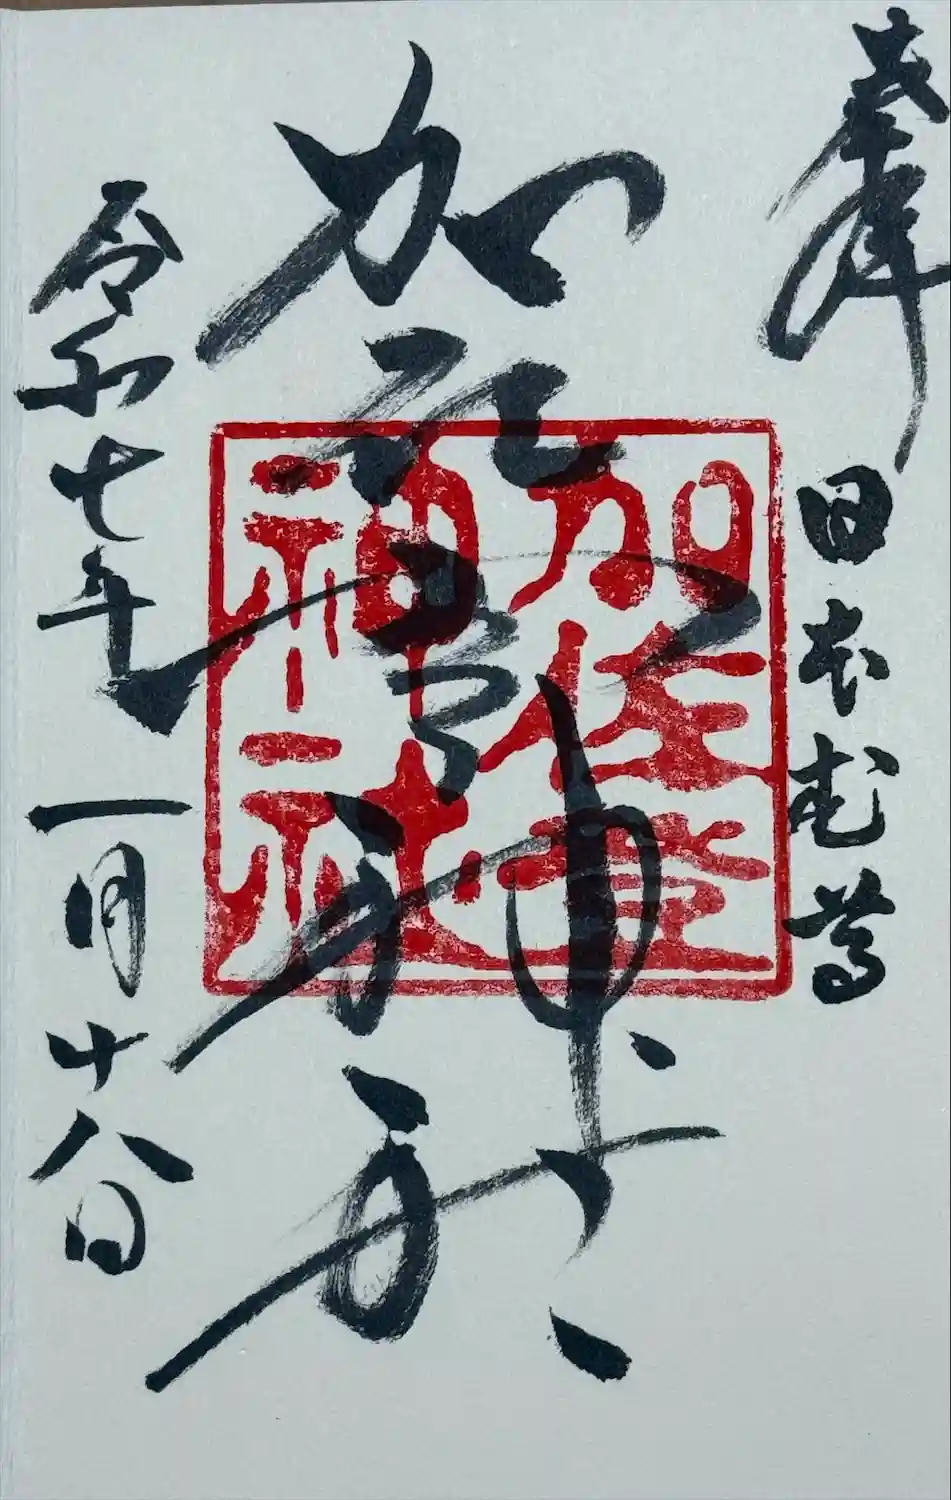 奉拝
日本武尊
加佐登神社
加佐登
神社
令和七年一月十八日